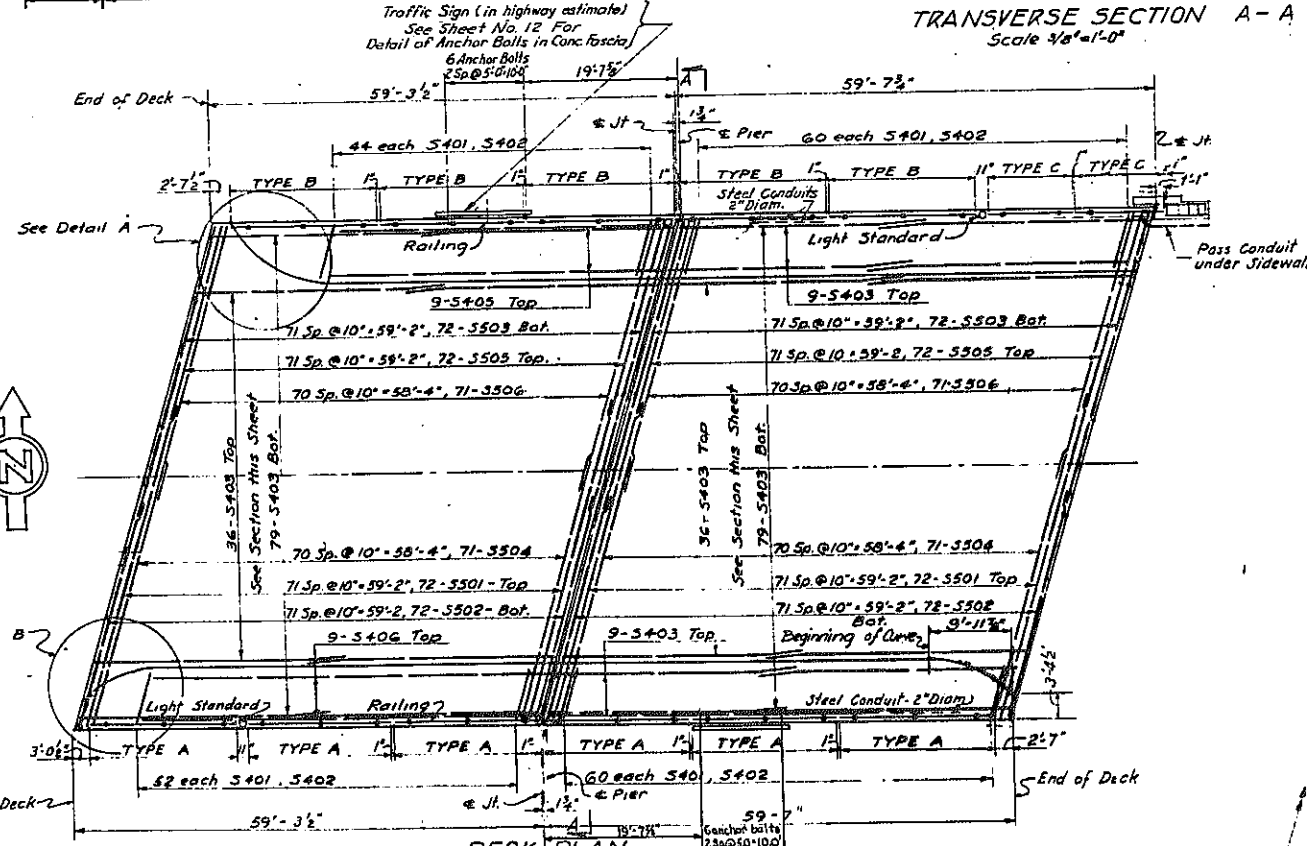 Traffic Sign (in highway estimate)
See Sheet No. 12 For
Detail of Anchor Bolts in Conc. Fascia
6 Anchor Bolts
2 Sp. @ 5'-0"=10'-0"
TRANSVERSE SECTION A-A
Scale 3/8"=1'-0"
End of Deck
59'-3½"
19'-7⅝"
A
59'-7¾"
1¾"
℄ Jt
℄ Pier
℄ Jt.
44 each S401, S402
60 each S401, S402
2'-7½"
TYPE B
1"
TYPE B
1"
TYPE B
1"
TYPE B
1"
TYPE B
11"
TYPE C
TYPE C
1"
1'-1"
Steel Conduits
2" Diam.
See Detail A
Railing
Light Standard
Pass Conduit
under Sidewalk
9-S405 Top
9-S403 Top
71 Sp. @ 10" = 59'-2", 72-S503 Bat.
71 Sp. @ 10" = 59'-2", 72-S503 Bat.
71 Sp. @ 10" = 59'-2", 72-S505 Top.
71 Sp. @ 10" = 59'-2, 72-S505 Top
70 Sp. @ 10" = 58'-4", 71-S506
70 Sp. @ 10" = 58'-4", 71-S506
36-S403 Top
See Section this Sheet
79-S403 Bat.
36-S403 Top
See Section this Sheet
79-S403 Bat.
N
70 Sp. @ 10" = 58'-4", 71-S504
70 Sp. @ 10" = 58'-4", 71-S504
71 Sp. @ 10" = 59'-2", 72-S501-Top
71 Sp. @ 10" = 59'-2", 72-S501 Top
71 Sp. @ 10" = 59'-2, 72-S502-Bat.
71 Sp. @ 10" = 59'-2", 72-S502
Bat.
B
9-S406 Top
9-S403 Top
Beginning of Curve
9'-11⅞"
3'-4½"
Light Standard
Railing
Steel Conduit-2" Diam
3'-0½"
TYPE A
11"
TYPE A
1"
TYPE A
1"
TYPE A
1"
TYPE A
1"
TYPE A
2'-7"
52 each S401, S402
60 each S401, S402
Deck
℄ Jt.
1¾"
℄ Pier
End of Deck
59'-3½"
A
19'-7¾"
59'-7"
6 anchor bolts
2 Sp @ 5'-0"=10'-0"
DECK PLAN